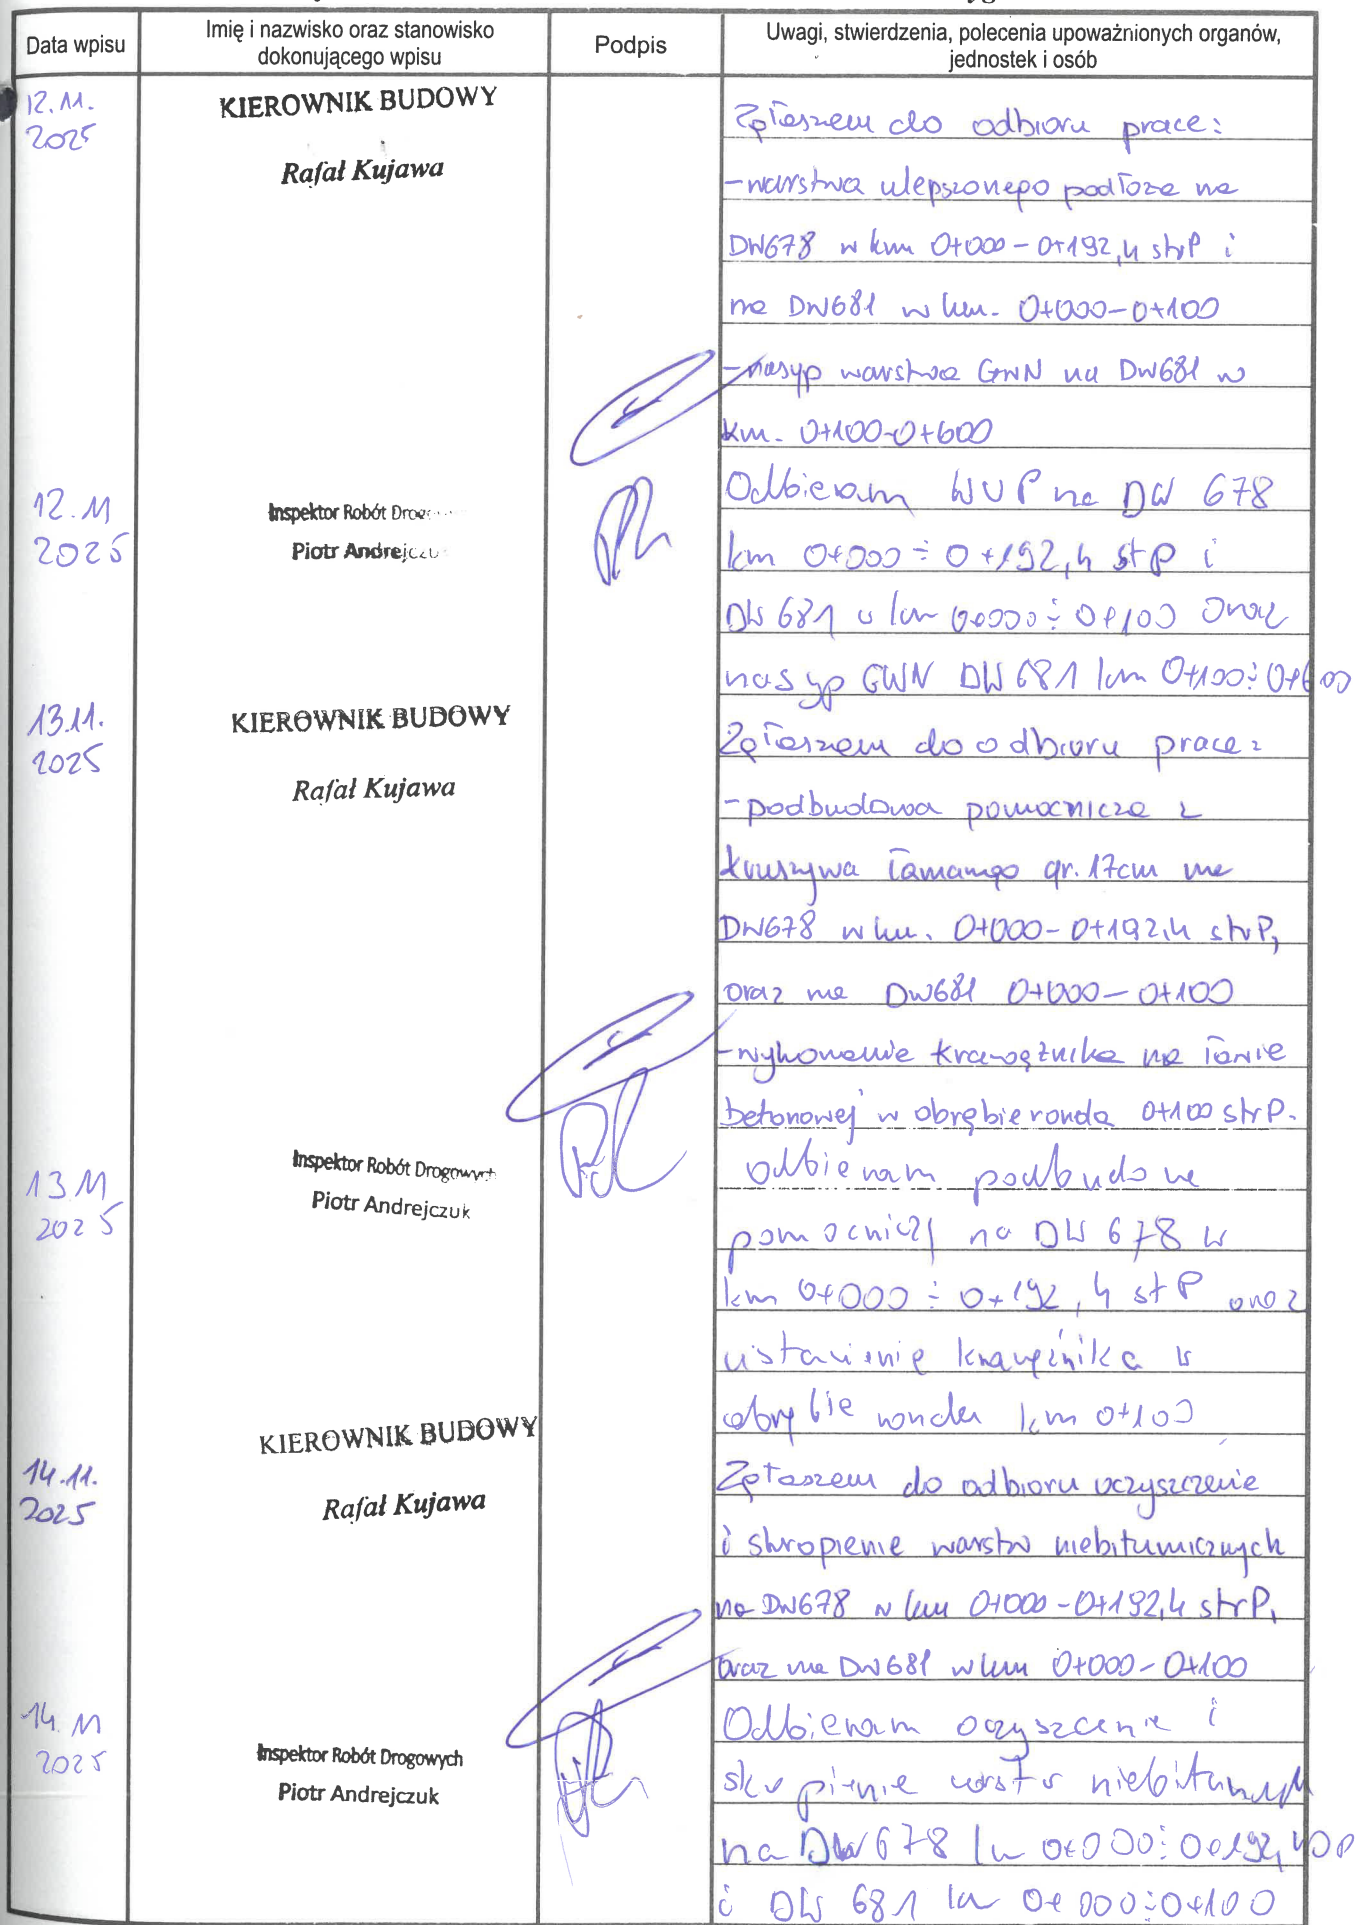 Data wpisu
Imię i nazwisko oraz stanowisko
dokonującego wpisu
Podpis
Uwagi, stwierdzenia, polecenia upoważnionych organów,
jednostek i osób
12.11.
2025
KIEROWNIK BUDOWY
Rafał Kujawa
Zgłaszam do odbioru prace:
-warstwa ulepszonego podłoża na
DW678 w km 0+000-0+192,4 strP i
na DW681 w km. 0+000-0+100
-nasyp warstwa GWN na DW681 w
km. 0+100-0+600
12.11
2025
Inspektor Robót
Piotr Andrejczu
Odbieram WUP na DW 678
km 0+000 ÷ 0+192,4 st P i
DW 681 w km 0+000 ÷ 0+100 oraz
nasyp GWN DW 681 km 0+100÷0+600
13.11.
2025
KIEROWNIK BUDOWY
Rafał Kujawa
Zgłaszam do odbioru prace:
-podbudowa pomocnicza z
kruszywa łamanego gr. 17cm na
DW678 w km. 0+000-0+192,4 strP,
oraz na DW681 0+000-0+100
-wykonanie krawężnika na ławie
betonowej w obrębie ronda 0+100 strP.
13.11
2025
Inspektor Robót Drogowych
Piotr Andrejczuk
Odbieram podbudowę
pomocniczą na DW 678 w
km 0+000 ÷ 0+192,4 st P oraz
ustawienie krawężnika w
obrębie ronda km 0+100
14.11.
2025
KIEROWNIK BUDOWY
Rafał Kujawa
Zgłaszam do odbioru oczyszczenie
i skropienie warstw niebitumicznych
na DW678 w km 0+000-0+192,4 strP,
oraz na DW681 w km 0+000-0+100
14.11
2025
Inspektor Robót Drogowych
Piotr Andrejczuk
Odbieram oczyszczenie i
skropienie warstw niebitumicznych
na DW 678 km 0+000÷0+192,4
i DW 681 km 0+000÷0+100